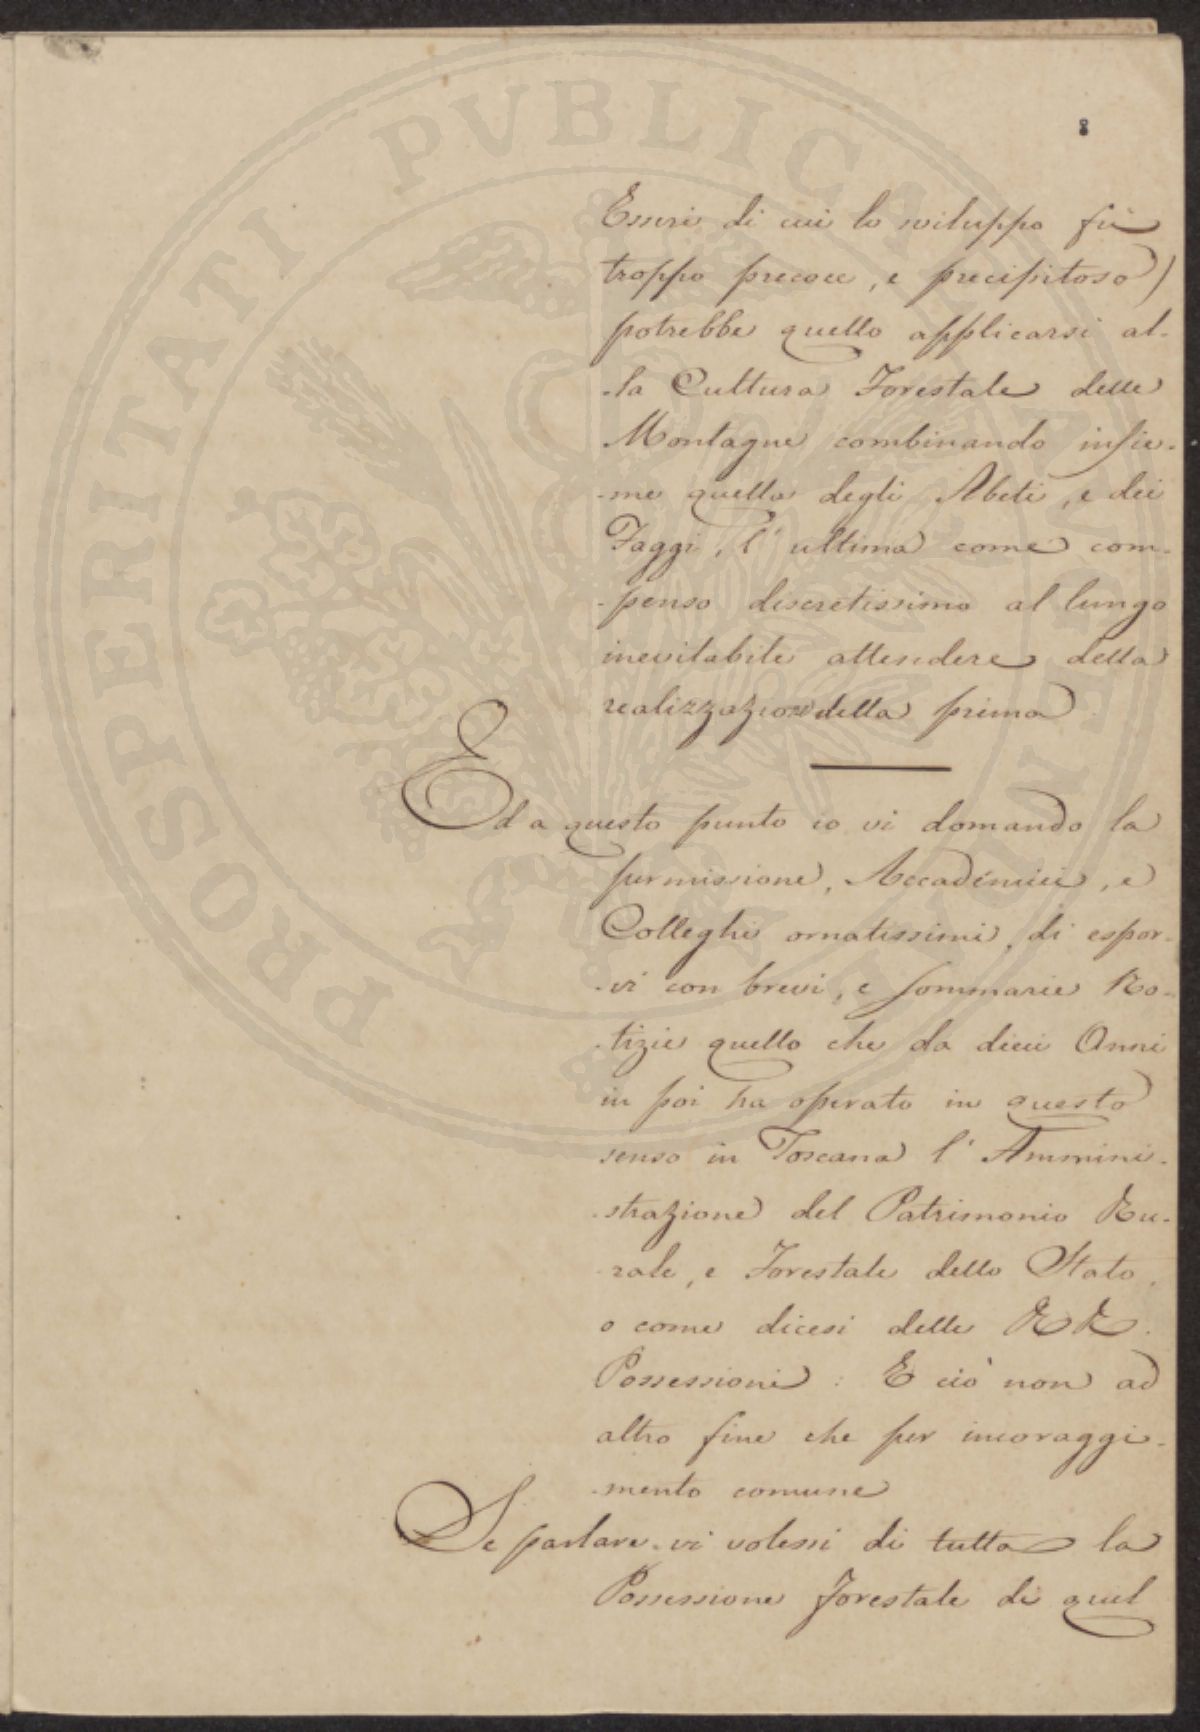 PROSPERITATI PVBLICAE AVGENDAE
8
Esseri di cui lo sviluppo fù
troppo precoce, e precipitoso)
potrebbe quello applicarsi al-
-la Cultura Forestale delle
Montagne combinando insie-
-me quella degli Abeti, e dei
Faggi, l'ultima come com-
-penso discretissimo al lungo
inevitabile attendere della
realizzazione della prima
Ed a questo punto io vi domando la
permissione, Accademici, e
Colleghi ornatissimi, di espor-
-vi con brevi, e sommarie No-
-tizie quello che da dieci Anni
in poi ha operato in questo
senso in Toscana l'Ammini-
-strazione del Patrimonio Ru-
-rale, e Forestale dello Stato,
o come dicesi delle RR.
Possessioni: E ciò non ad
altro fine che per incoraggi-
-mento comune
Se parlare-vi volessi di tutta la
Possessione Forestale di quel